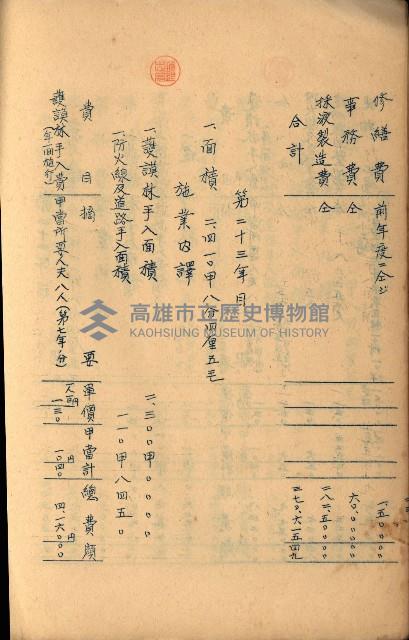 修繕費 前年度ニ仝シ 一、五〇〇〃〃
事務費 仝 六〇、〇〇〇〃〃
採液製造費 仝 二八二、五〇〇〃〃
合計
第二十三年目
一、面積 二、四一〇甲八分四厘五毛
施業内譯
一、護謨林手入面積 二、三〇〇甲〇〇〇〇
一、防火線及道路手入面積 一一〇甲八四五〇
費目 摘要 單價 甲當計 總費額
護謨林手入費 甲當所要人夫八人(第七年ノ分)
(年一回施行)
人夫 一、三〇 円 一〇、四〇 円 四、一六〇〇〇
高雄市立歷史博物館
KAOHSIUNG MUSEUM OF HISTORY